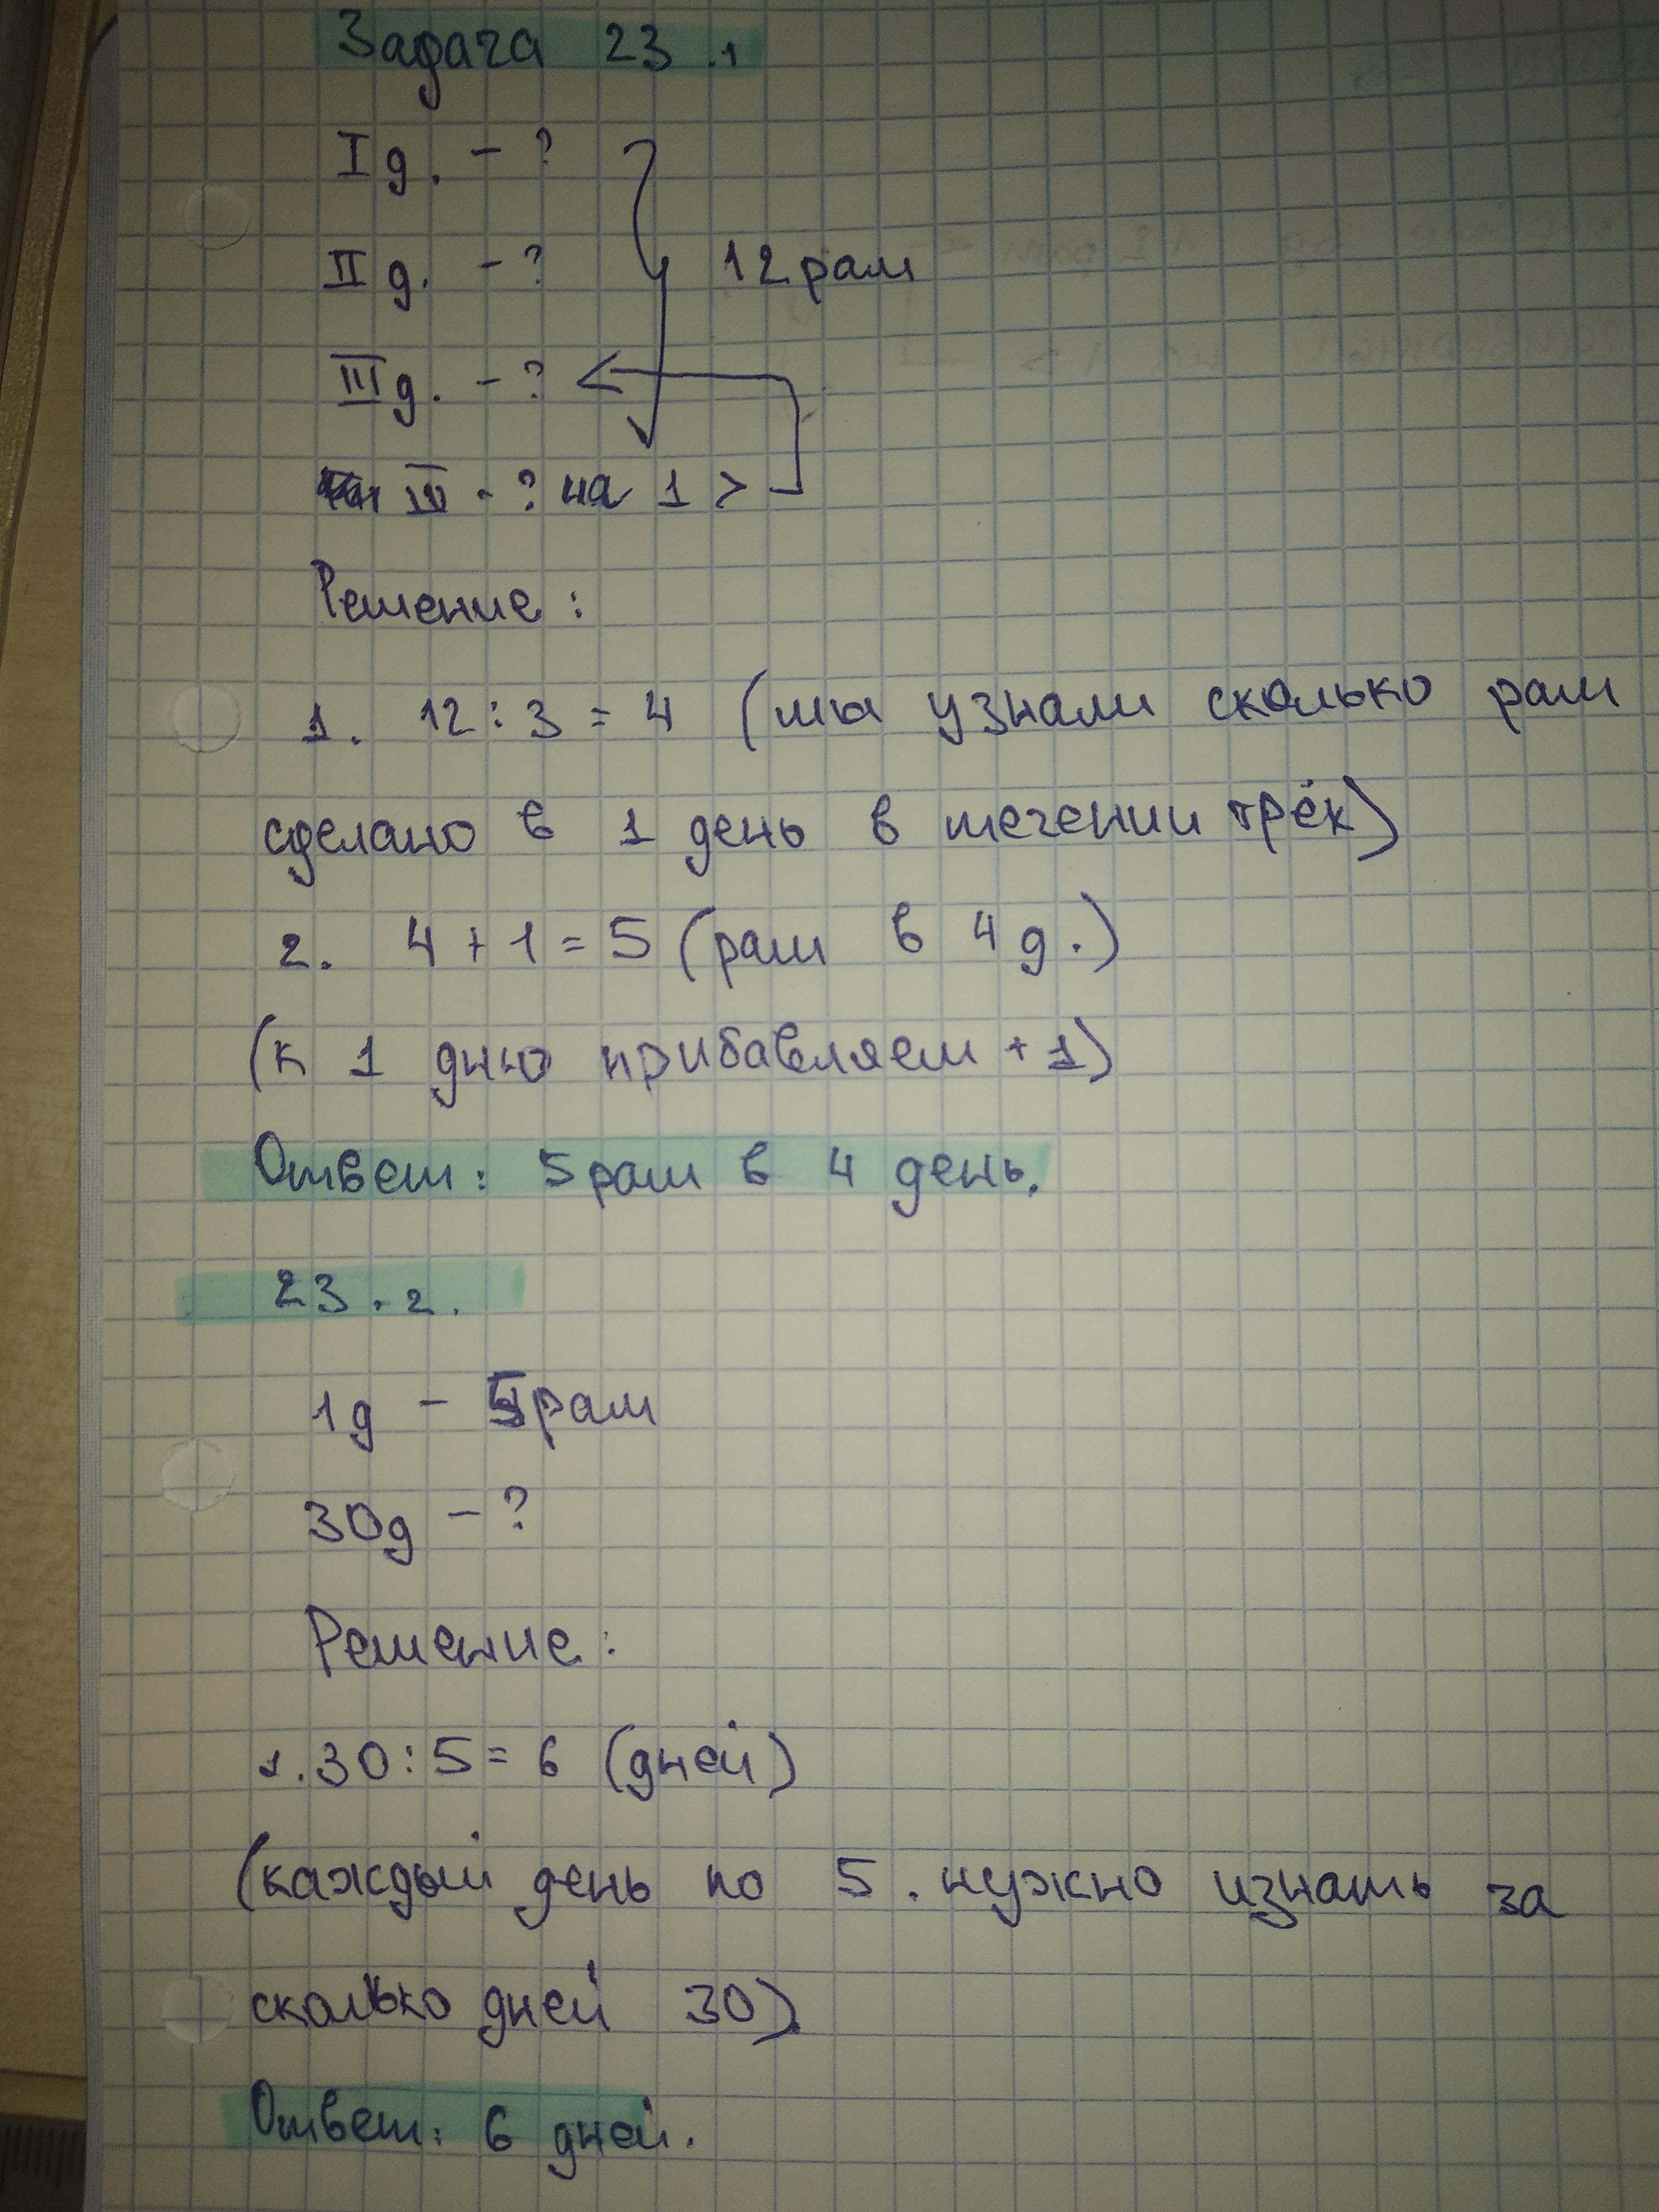 Задача 23.1
I д. - ?
II д. - ? 12 рам
III д. - ?
IV - ? на 1 >
Решение:
1. 12 : 3 = 4 (мы узнали сколько рам
сделано в 1 день в течении трёх)
2. 4 + 1 = 5 (рам в 4 д.)
(к 1 дню прибавляем + 1)
Ответ: 5 рам в 4 день.
23.2.
1д - 5 рам
30д - ?
Решение:
1. 30 : 5 = 6 (дней)
(каждый день по 5. нужно изнать за
сколько дней 30).
Ответ: 6 дней.